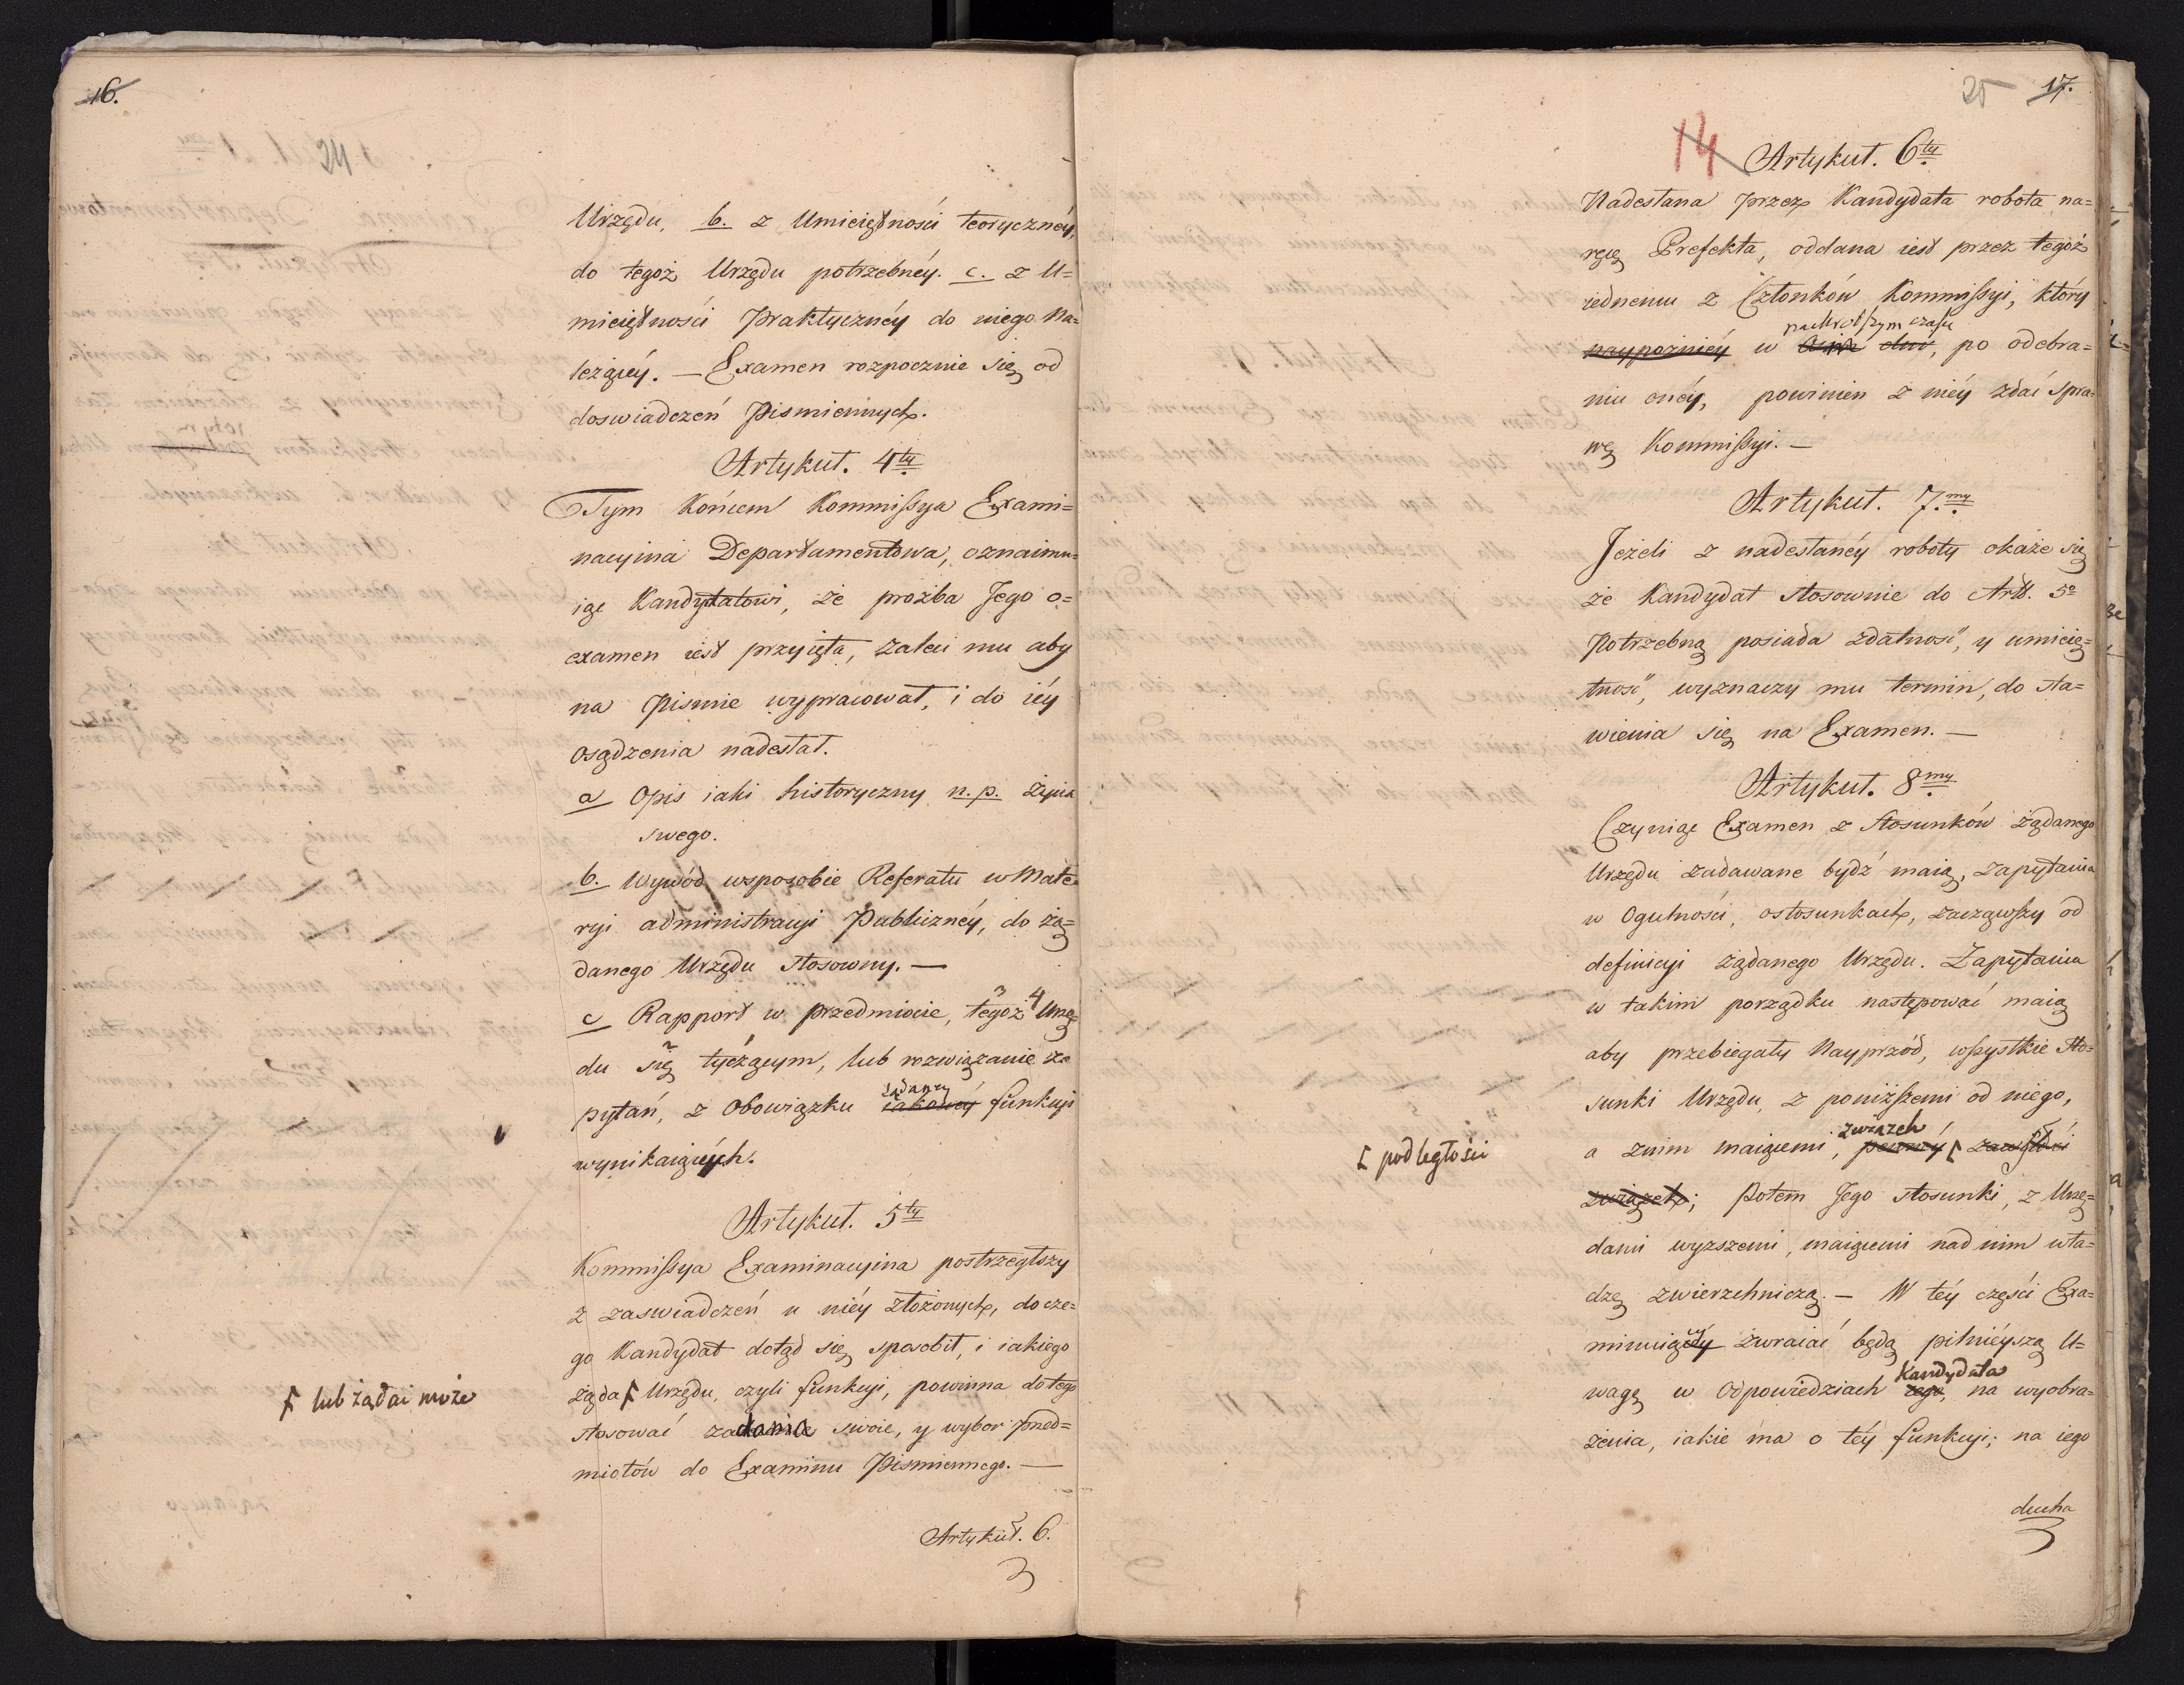 16.
24
Urzędu, b. z Umieiętności teoryczney,
do tegoż Urzędu potrzebnéy. c. z U=
mieiętności Praktycznéy do niego Na=
leżącéy. — Examen rozpocznie się od
doswiadczeń Pismiennych.
Artykuł. 4ty
Tym Końcem Kommissya Exami=
nacyina Departamentowa, oznaimu=
iąc Kandydatowi, że prożba Jego o=
examen iest przyięta, zaleci mu aby
na Pismie wypracował, i do iéy
osądzenia nadesłał.
a Opis iaki historyczny n. p. życia
swego.
b. Wywód wsposobie Referatu w Mate=
ryi administracyi Publiczney, do żą=
danego Urzędu stosowny. —
c Rapport w przedmiocie, 3 tegoż 4 Urzę=
du 2 się 1 tyczącym, lub rozwiązanie za
pytań, z Obowiązku żądaney iakowéy funkcyi
wynikaiących.
Artykuł. 5ty
Kommissya Examinacyina postrzegłszy
z zaswiadczeń u niéy złożonych, do cze=
go Kandydat dotąd się sposobił, i iakiego
żąda Urzędu, czyli funkcyi, powinna do tego
lub żądać może
stosować zadania swoie, y wybor przed=
miotów do Examinu Pismiennego. —
Artykuł. 6.
25 17.
14 Artykuł. 6ty
Nadesłana przez Kandydata robota na=
ręcę Prefekta, oddana iest przez tegoż
iednemu z Członków Kommissyi, który
naykrotszym czasie
naypozniéy w dni, po odebra=
niu onéy, powinien z niéy zdać spra=
wę Kommissyi. —
Artykuł. 7.my
Jeżeli z nadesłanéy roboty okaże się
że Kandydat stosownie do Artt. 5o
Potrzebną posiada zdatność, y umieię=
tność, wyznaczy mu termin, do sta=
wienia się na Examen. —
Artykuł. 8my
Czyniąc Examen z Stosunków żądanego
Urzędu zadawane bydź maią, zapytania
w Ogulności, ostosunkach, zacząwszy od
definicyi żądanego Urzędu. Zapytania
w takim porządku następować maią
aby przebiegały Nayprzód, wszystkie Sto=
sunki Urzędu, z poniższemi od niego,
związek
a znim maiącemi, pewnéy zawisłości
podległości
związek; Potem Jego stosunki, z Urzę=
dami wyzszemi, maiącemi nad nim wła=
dzę zwierzchniczą. — W téy części Exa=
minuiący zwracać będą pilniéyszą U=
wagę w Odpowiedziach Kandydata iego, na wyobra=
żenia, iakie ma o téy funkcyi; na iego
ducha